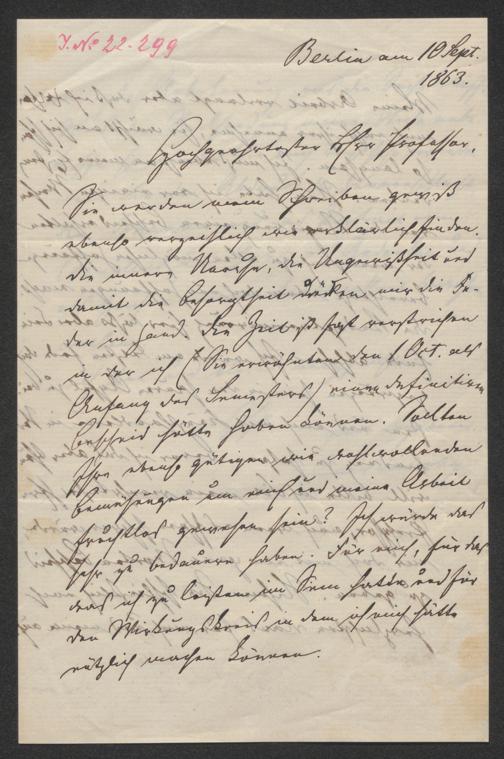 J. No 22-299
Berlin am 10 Sept.
1863.
Hochgeehrtester Herr Professor,
Sie werden mein Schreiben gewiß
ebenso verzeihlich wie erklärlich finden.
Die innere Unruhe, die Ungewißheit und
damit die Besorgtheit drücken mir die Fe-
der in Hand. Die Zeit ist fast verstrichen
in der ich (Sie erwähnten den 1 Oct. als
Anfang des Semesters) einen definitiven
Bescheid hätte haben können. Sollten
Ihre ebenso gütigen wie wohlwollenden
Bemühungen um mich und meine Arbeit
fruchtlos gewesen sein? Ich würde das
sehr zu bedauern haben. Für mich, für das
was ich zu leisten im Sinn hatte und für
den Wirkungskreis in dem ich mich hätte
nützlich machen können.